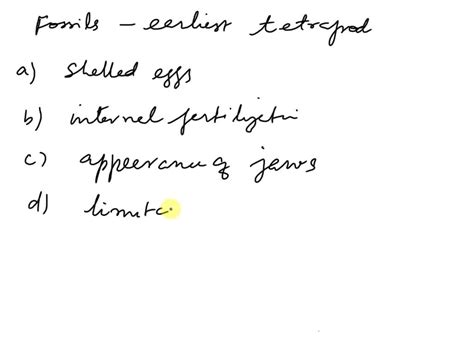 Fossils - earliest tetrapod
a) shelled eggs
b) internal fertilization
c) appearance of jaws
d) limita